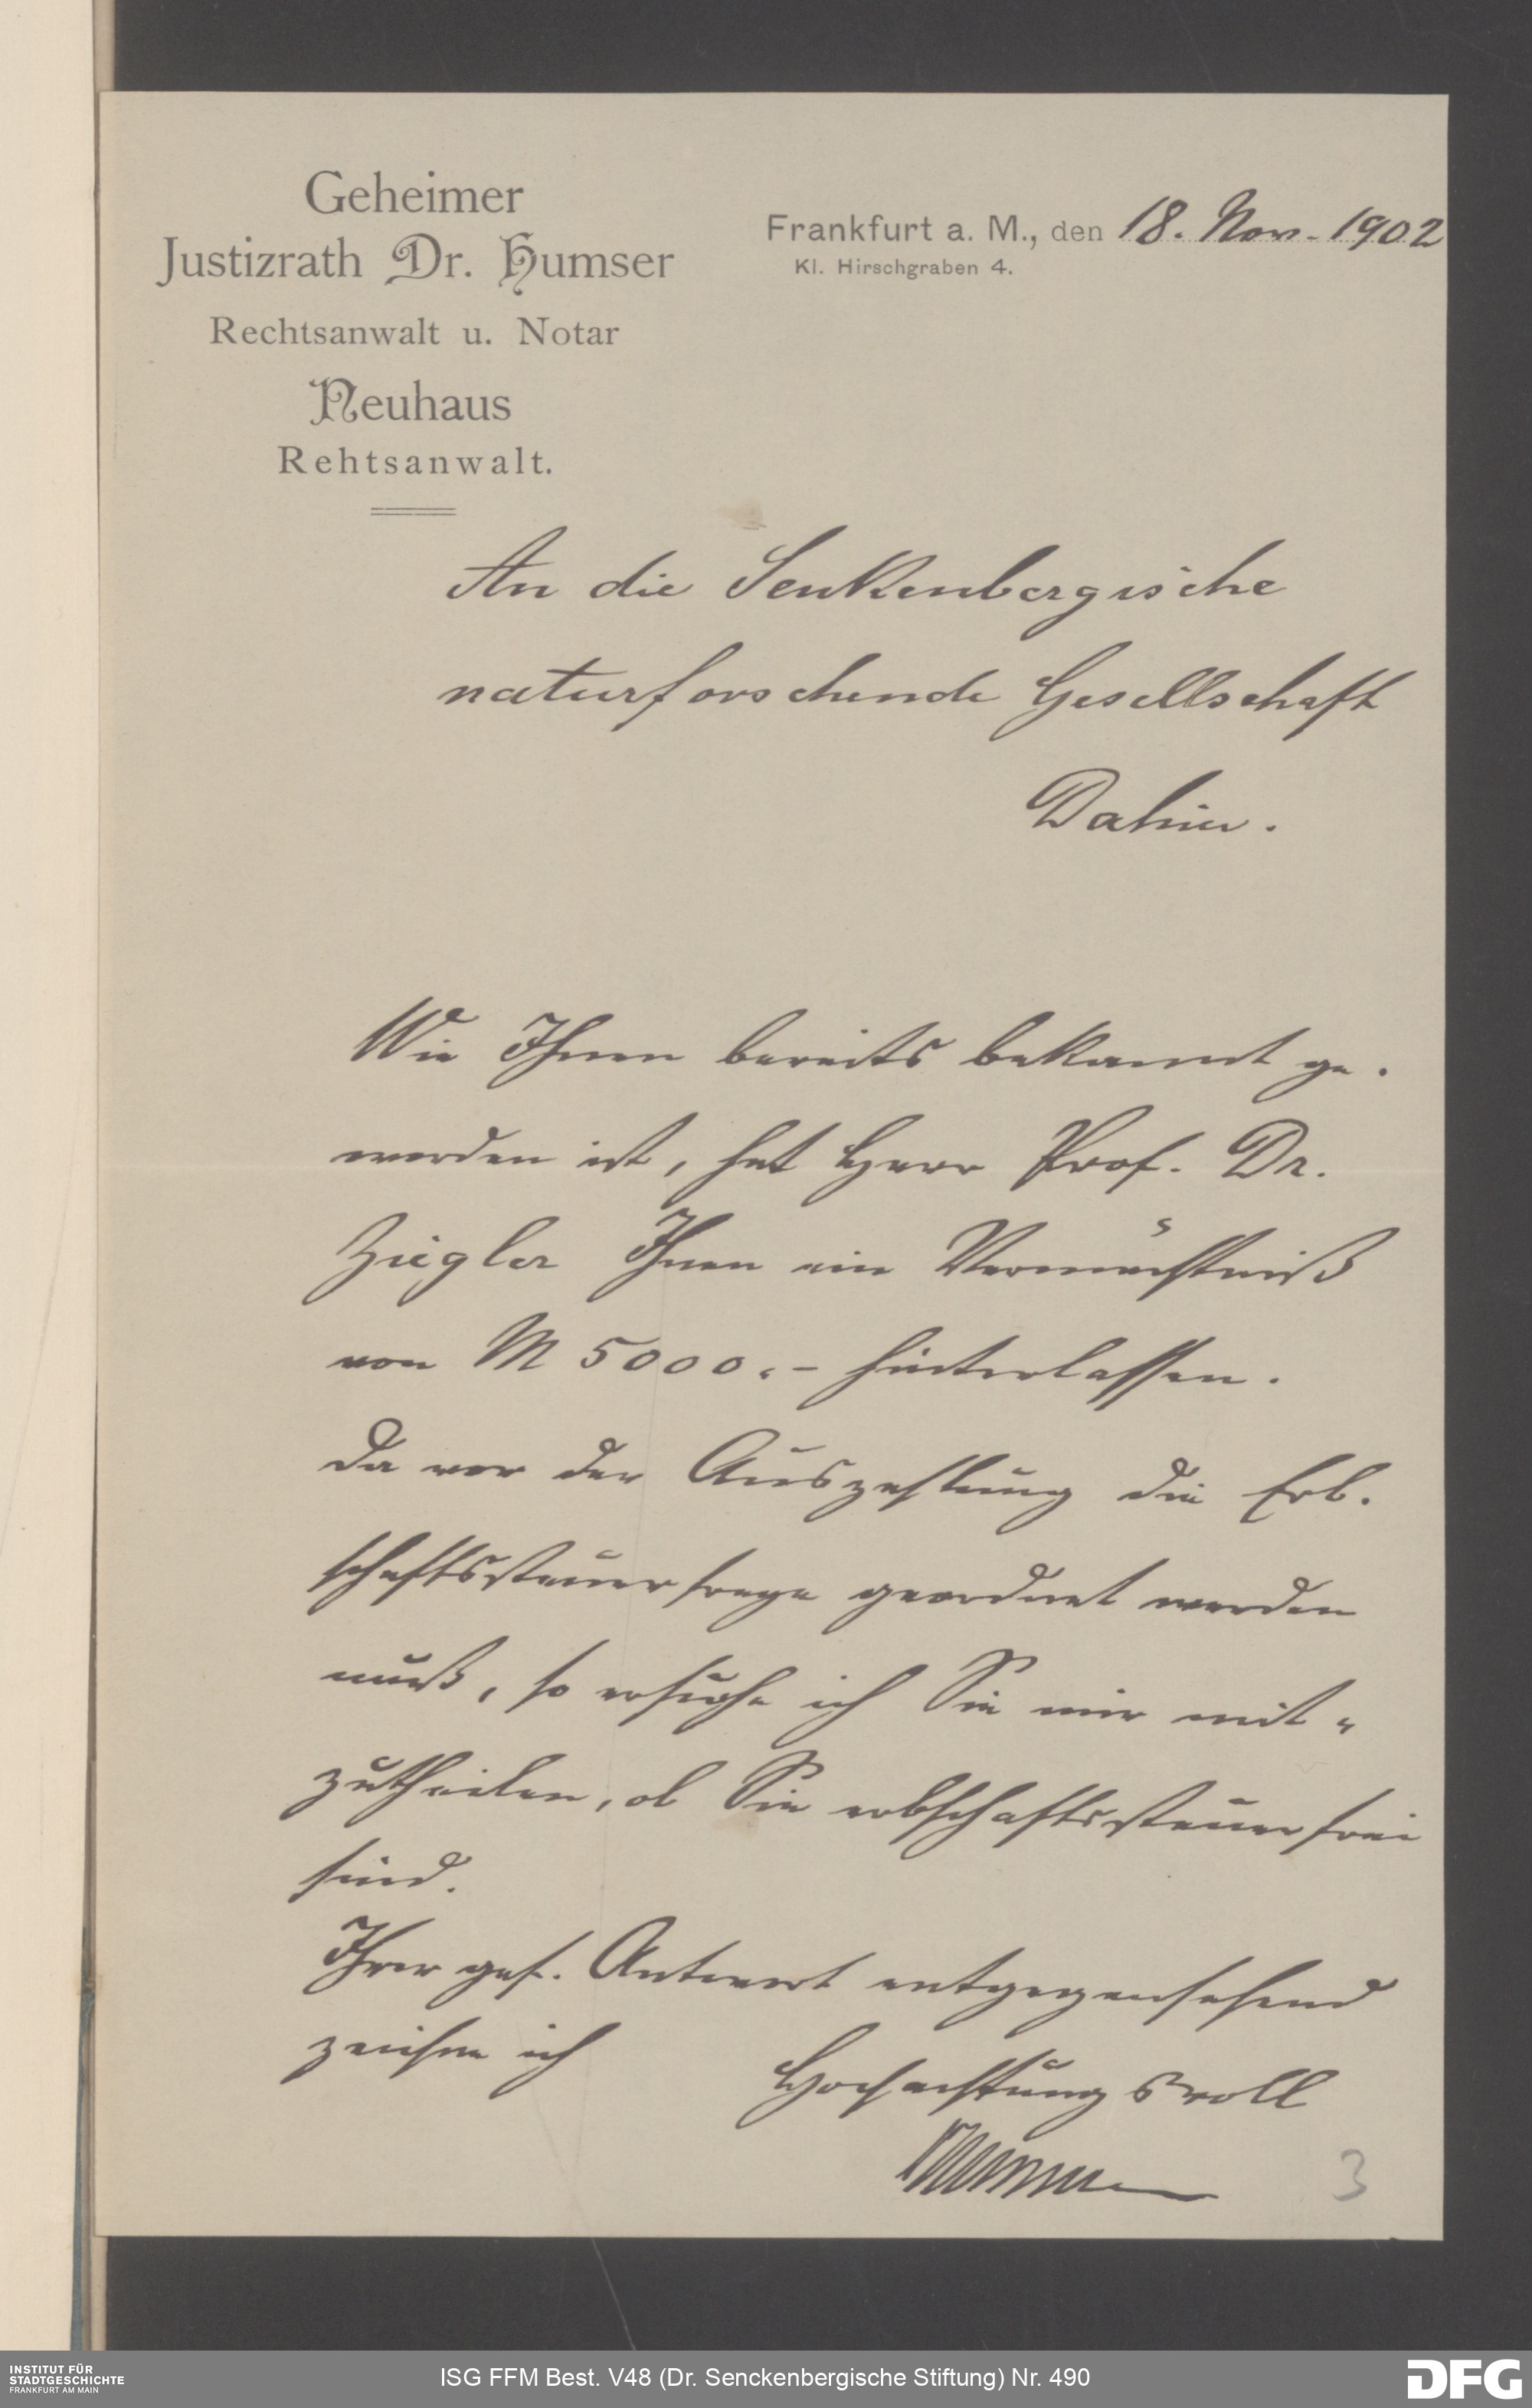 Geheimer
Justizrath Dr. Humser
Rechtsanwalt u. Notar
Neuhaus
Rehtsanwalt.
Frankfurt a. M., den 18. Nov. 1902
Kl. Hirschgraben 4.
An die Senkenbergische
naturforschende Gesellschaft
Dahier.
Wie Ihnen bereits bekannt ge-
worden ist, hat Herr Prof. Dr.
Ziegler Ihnen ein Vermächtniß
von M 5000.- hinterlassen.
Da vor der Auszahlung die Erb-
schaftssteuerfrage geordnet werden
muß, so ersuche ich Sie mir mit-
zutheilen, ob Sie erbschaftssteuerfrei
sind.
Ihrer gef. Antwort entgegensehend
zeichne ich
Hochachtungsvoll
3
INSTITUT FÜR
STADTGESCHICHTE
FRANKFURT AM MAIN
ISG FFM Best. V48 (Dr. Senckenbergische Stiftung) Nr. 490
DFG